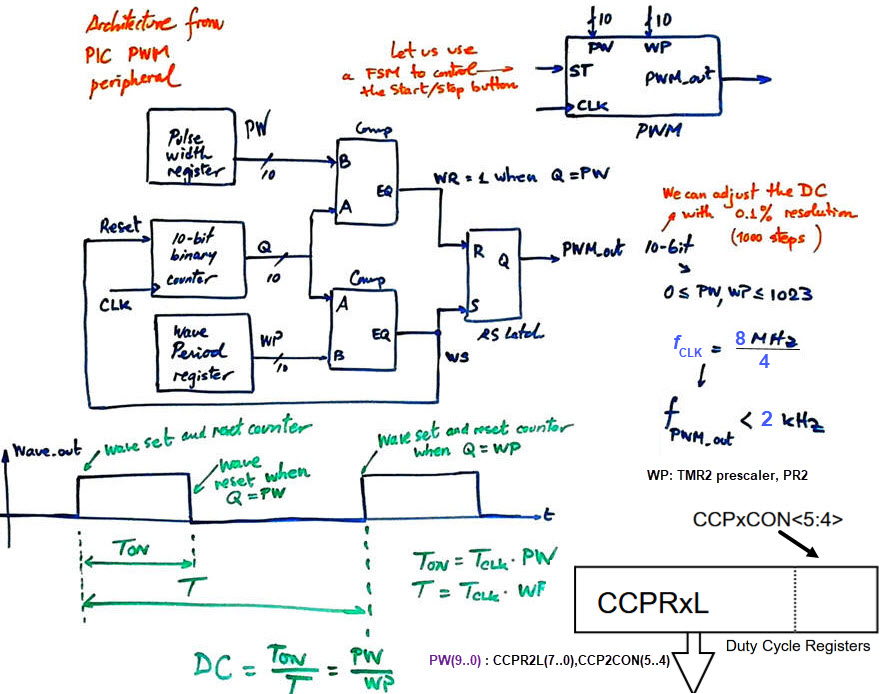 Architecture from
PIC PWM
peripheral
Let us use
a FSM to control
the Start/Stop button
10
10
PW
WP
ST
PWM_out
CLK
PWM
Pulse
width
register
PW
10
Comp
B
EQ
A
WR = 1 when Q = PW
Reset
10-bit
binary
counter
Q
10
CLK
R
Q
S
PWM_out
RS latch
Comp
A
EQ
B
WS
Wave
Period
register
WP
10
We can adjust the DC
with 0.1% resolution
(1000 steps)
10-bit
0 ≤ PW, WP ≤ 1023
fCLK = 8 MHz
4
fPWM_out < 2 kHz
WP: TMR2 prescaler, PR2
Wave_out
wave set and reset counter
wave
reset when
Q = PW
wave set and reset counter
when Q = WP
t
TON
T
TON = TCLK · PW
T = TCLK · WP
DC = TON / T = PW / WP
CCPxCON<5:4>
CCPRxL
Duty Cycle Registers
PW(9..0) : CCPR2L(7..0),CCP2CON(5..4)